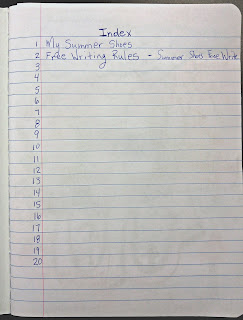 Index
1 My Summer Shoes
2 Free Writing Rules - Summer Shoes Free Write
3
4
5
6
7
8
9
10
11
12
13
14
15
16
17
18
19
20